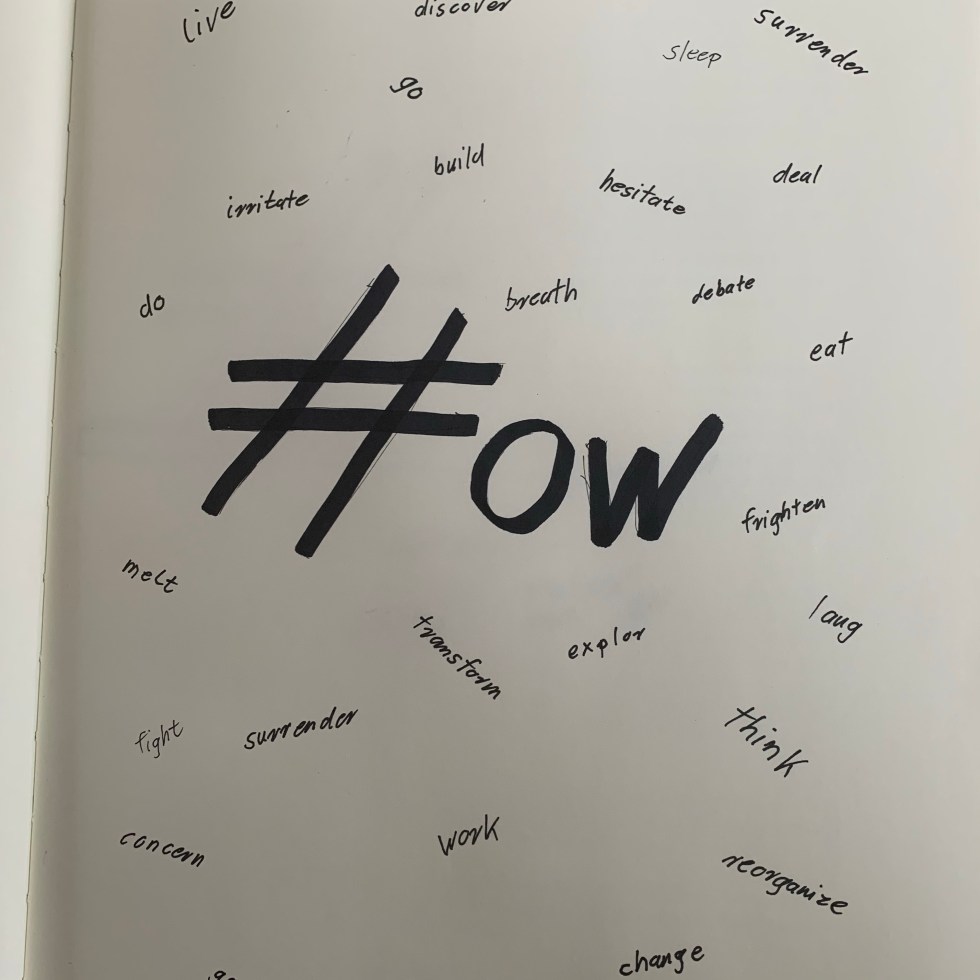 live
discover
surrender
sleep
go
build
deal
hesitate
irritate
breath
debate
do
eat
#ow
frighten
melt
laug
explor
transform
think
fight
surrender
work
concern
reorganize
change